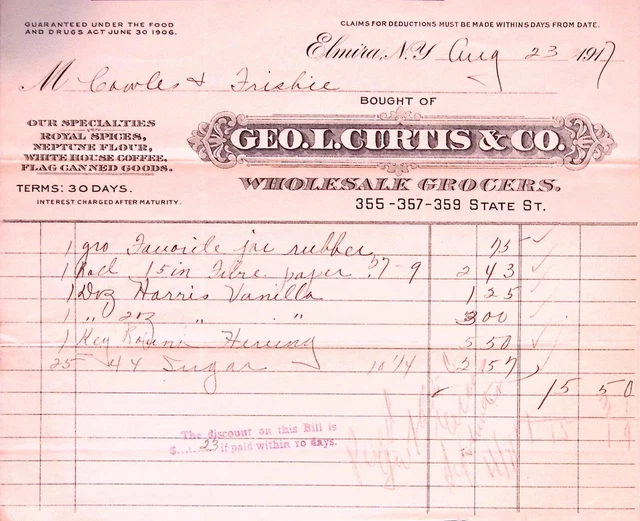 GUARANTEED UNDER THE FOOD
AND DRUGS ACT JUNE 30 1906.
CLAIMS FOR DEDUCTIONS MUST BE MADE WITHIN 5 DAYS FROM DATE.
Elmira, N.Y. Aug 23 1917
M Cowles & Frisbie
BOUGHT OF
GEO. L. CURTIS & CO.
WHOLESALE GROCERS.
355-357-359 STATE ST.
OUR SPECIALTIES
ROYAL SPICES,
NEPTUNE FLOUR,
WHITE HOUSE COFFEE,
FLAG CANNED GOODS.
TERMS: 30 DAYS.
INTEREST CHARGED AFTER MATURITY.
1 gro Favorite jar rubber 75
1 Roll 15 in Fibre paper 27-9 2 43
1 Doz Harris Vanilla 1 25
1 " 2oz " " 3 00
1 Keg Herring 5 50
25 44 Sugar 10 1/4 2 57
15 50
The discount on this Bill is
$ .23 if paid within 10 days.